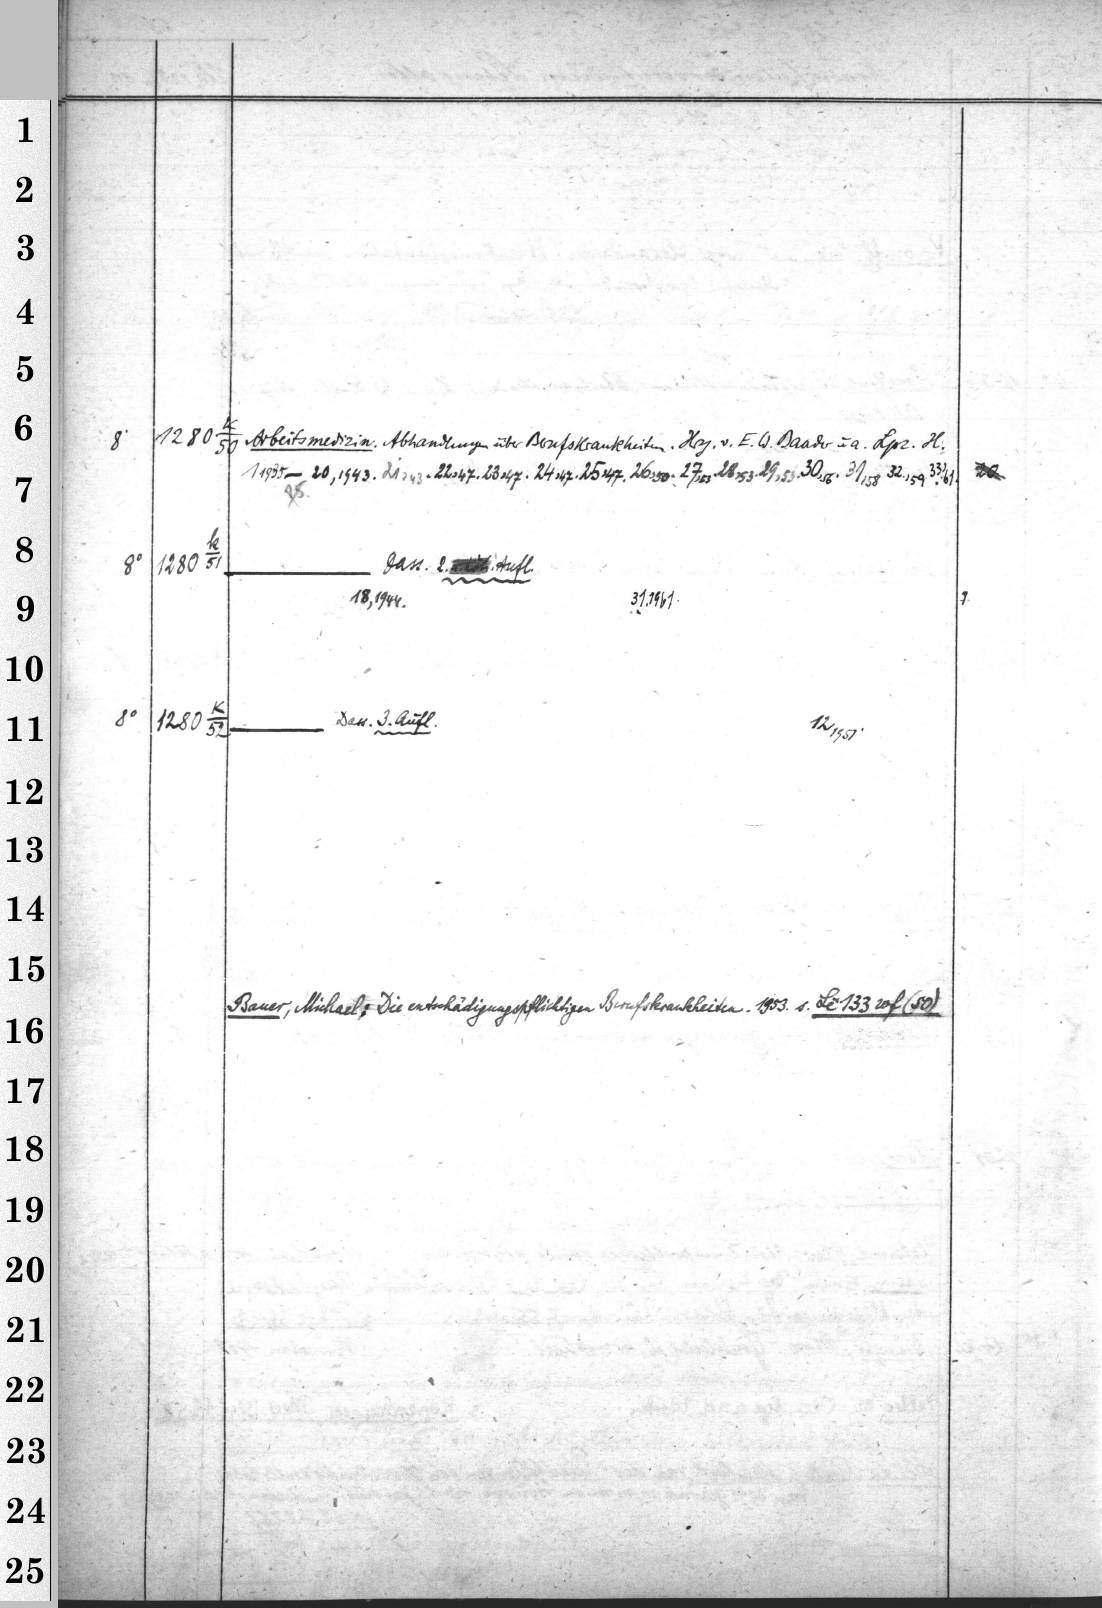 1
2
3
4
5
6
7
8
9
10
11
12
13
14
15
16
17
18
19
20
21
22
23
24
25
8° 1280 K/50 Arbeitsmedizin. Abhandlungen über Berufskrankheiten. Hrg. v. E. W. Baader u. a. Lpz. H.
1 1935 — 20, 1943. 21, 43. 22, 47. 23, 47. 24, 47. 25, 47. 26, 50. 27, 53. 28, 53. 29, 53. 30, 56. 31, 58 32, 59 33, 61.
8° 1280 k/51 Dass. 2. Aufl.
18, 1944. 31, 1961.
8° 1280 K/52 Dass. 3. Aufl. 12, 1951
Bauer, Michael: Die entschädigungspflichtigen Berufskrankheiten. 1953. s. Le 133 wf (50)